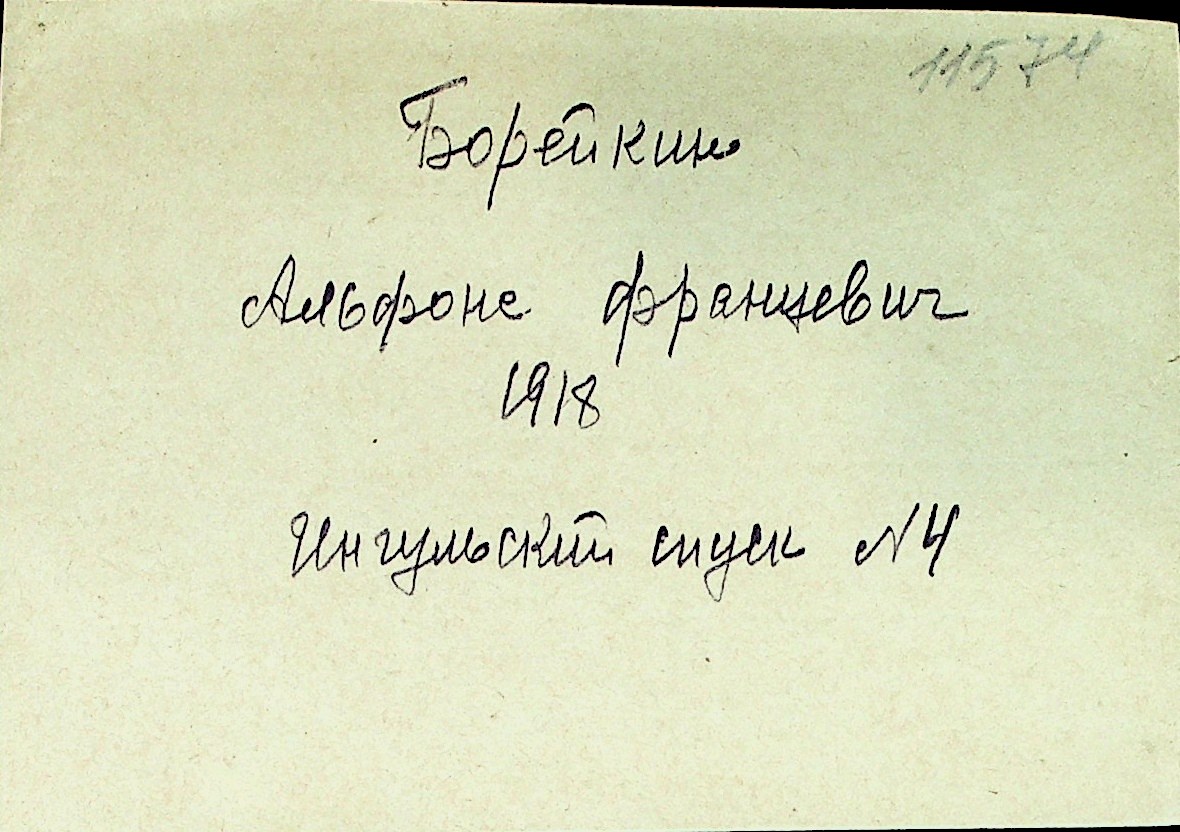 11574
Борейкин
Альфонс Францевич
1918
Ингульский спуск N4